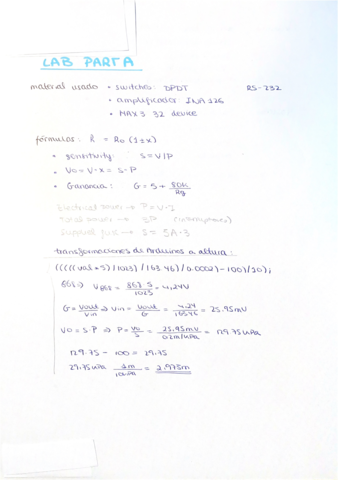 LAB PART A
material usado • switches: DPDT RS-232
• amplificador INA 126
• MAX 3 32 device
fórmulas: R = Ro (1±x)
• sensitivity: S = V/P
• Vo = V·x = S·P
• Ganancia: G = 5 + 80K/Rg
→ P = V·I
→ S = 
transformaciones de Arduinos a altura:
(((((val*5)/1023)/163.46)/0.0002)-100)/10);
868 → V868 = 868·5/1023 = 4,24V
G = Vout/Vin → Vin = Vout/G = 4,24/163.46 = 25.95mV
VO = S·P → P = Vo/S = 25.95mV/0.2mV/kPa = 129.75 kPa
129.75 - 100 = 29.75
29.75 kPa 1m/10kPa = 2.975m